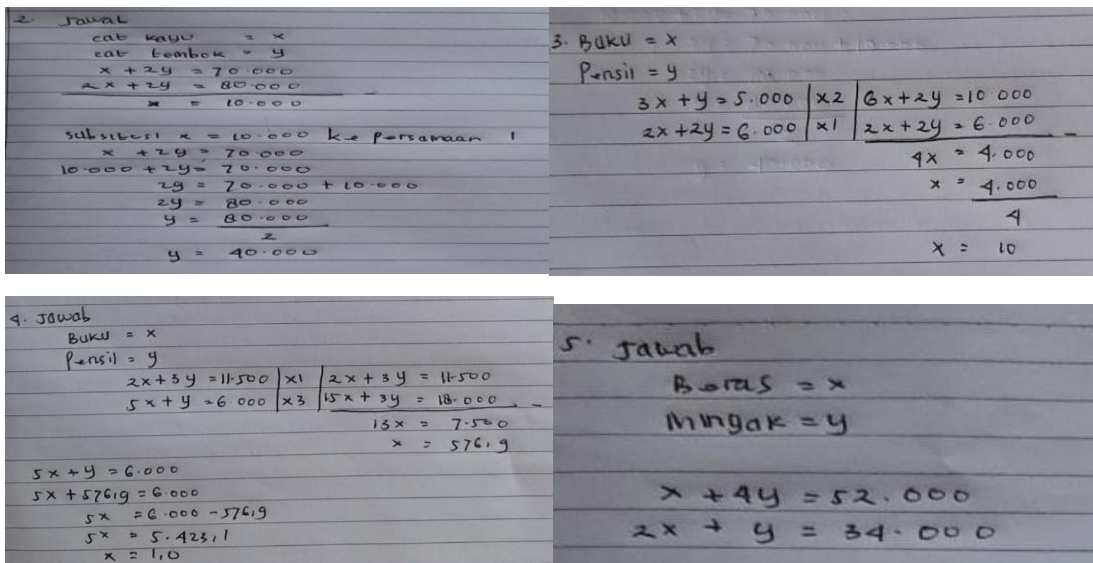 2. Jawab
cat kayu = x
cat tembok = y
x + 2y = 70.000
2x + 2y = 80.000
x = 10.000
subsitusi x = 10.000 ke persamaan 1
x + 2y = 70.000
10.000 + 2y = 70.000
2y = 70.000 + 10.000
2y = 80.000
y = 80.000
2
y = 40.000
3. Buku = x
Pensil = y
3x + y = 5.000 | x2 | 6x + 2y = 10.000
2x + 2y = 6.000 | x1 | 2x + 2y = 6.000 -
4x = 4.000
x = 4.000
4
x = 10
4. Jawab
Buku = x
Pensil = y
2x + 3y = 11.500 | x1 | 2x + 3y = 11.500
5x + y = 6.000 | x3 | 15x + 3y = 18.000 -
13x = 7.500
x = 576,9
5x + y = 6.000
5x + 576,9 = 6.000
5x = 6.000 - 576,9
5x = 5.423,1
x = 1,0
5. Jawab
Beras = x
Mingak = y
x + 4y = 52.000
2x + y = 34.000